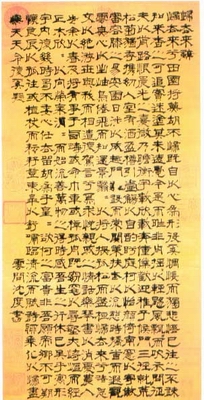 歸去來辭
歸去來兮田園將蕪胡不歸既自以心為形役奚惆悵而獨悲悟已往之不諫
知來者之可追實迷途其未遠覺今是而昨非舟遙遙以輕颺風飄飄而吹衣問征
夫以前路恨晨光之熹微乃瞻衡宇載欣載奔僮僕歡迎稚子候門三徑就荒
松菊猶存攜幼入室有酒盈樽引壺觴以自酌眄庭柯以怡顏倚南窗以寄傲
審容膝之易安園日涉以成趣門雖設而常關策扶老以流憩時矯首而遐觀
雲無心以出岫鳥倦飛而知還景翳翳以將入撫孤松而盤桓歸去來兮請息
交以絕游世與我而相遺復駕言兮焉求悅親戚之情話樂琴書以消憂農人
告余以春及將有事於西疇或命巾車或棹孤舟既窈窕以尋壑亦崎嶇而經
丘木欣欣以向榮泉涓涓而始流善萬物之得時感吾生之行休已矣乎寓形
宇內復幾時曷不委心任去留胡為遑遑欲何之富貴非吾願帝鄉不可期
懷良辰以孤往或植杖而耘耔登東皋以舒嘯臨清流而賦詩聊乘化以歸盡
樂夫天命復奚疑
雲間沈度書